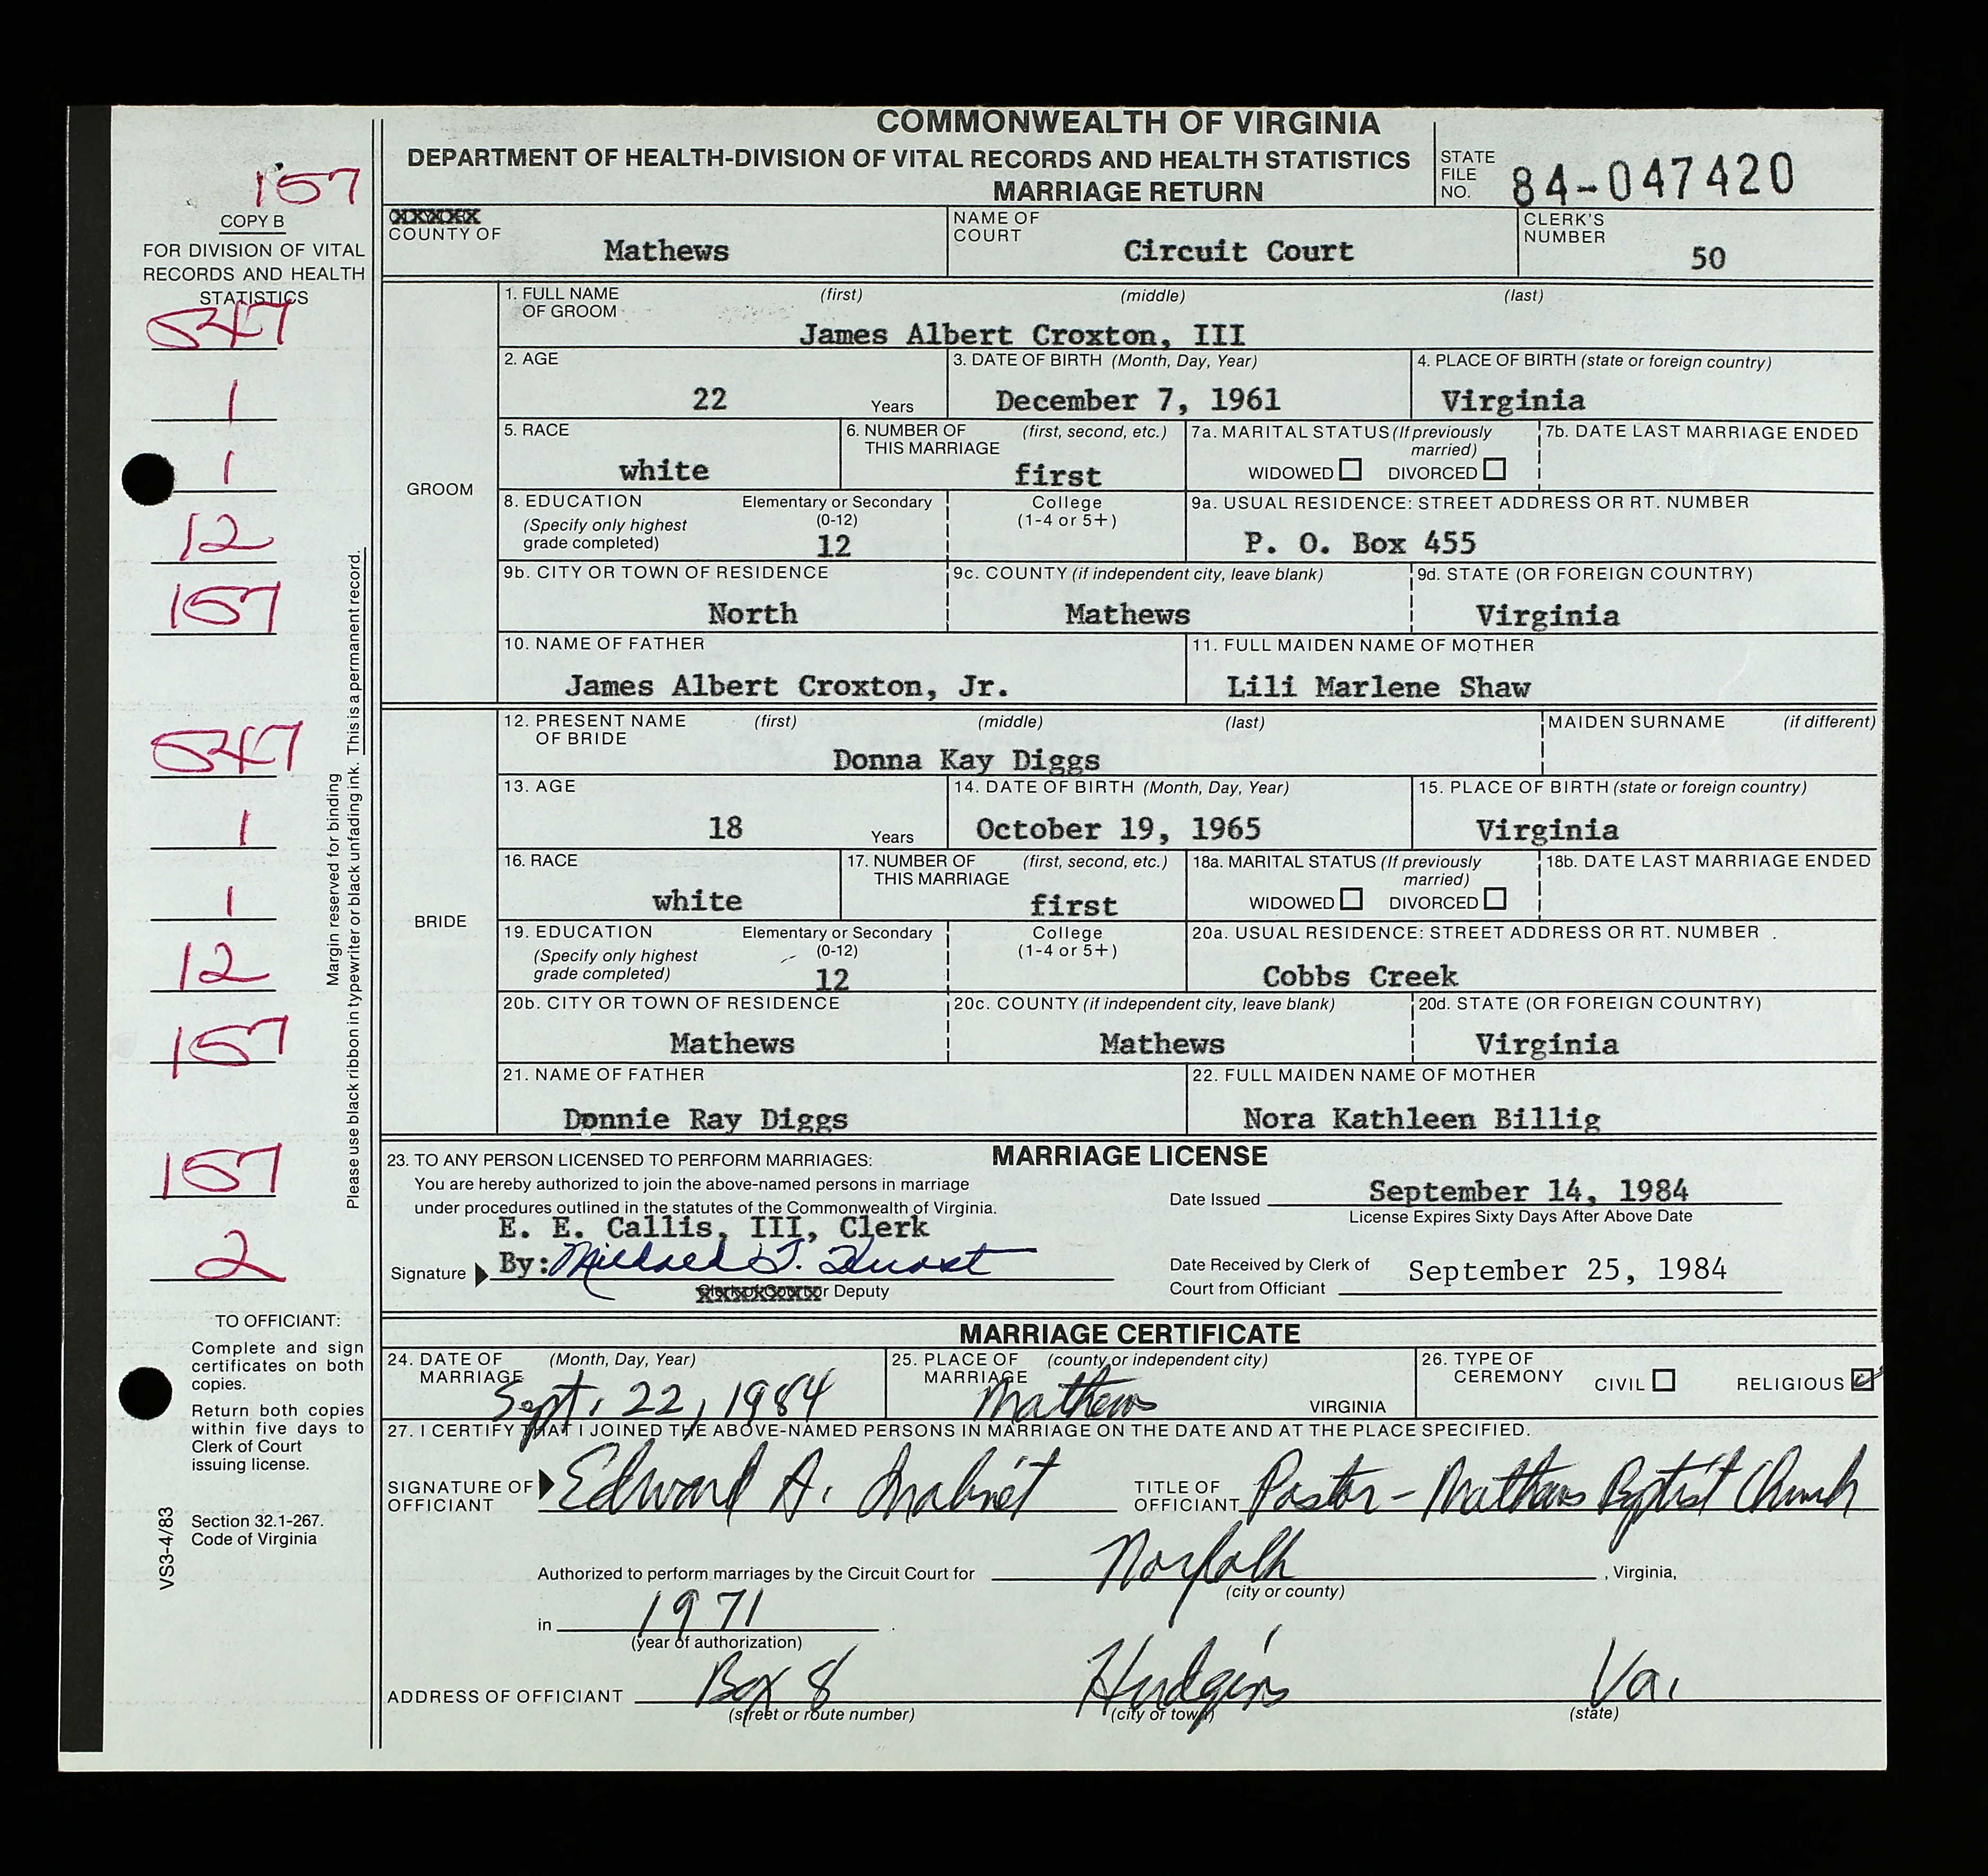 COMMONWEALTH OF VIRGINIA
DEPARTMENT OF HEALTH-DIVISION OF VITAL RECORDS AND HEALTH STATISTICS
MARRIAGE RETURN
STATE FILE NO. 84-047420
157
COPY B
FOR DIVISION OF VITAL
RECORDS AND HEALTH
STATISTICS
547
1
1
12
157
547
1
1
12
157
157
2
Margin reserved for binding
Please use black ribbon in typewriter or black unfading ink. This is a permanent record.
TO OFFICIANT:
Complete and sign
certificates on both
copies.
Return both copies
within five days to
Clerk of Court
issuing license.
Section 32.1-267.
Code of Virginia
VS3-4/83
XXXXX
COUNTY OF Mathews
NAME OF COURT Circuit Court
CLERK'S NUMBER 50
GROOM
1. FULL NAME OF GROOM (first) (middle) (last)
James Albert Croxton, III
2. AGE 22 Years
3. DATE OF BIRTH (Month, Day, Year) December 7, 1961
4. PLACE OF BIRTH (state or foreign country) Virginia
5. RACE white
6. NUMBER OF THIS MARRIAGE (first, second, etc.) first
7a. MARITAL STATUS (If previously married) WIDOWED DIVORCED
7b. DATE LAST MARRIAGE ENDED
8. EDUCATION (Specify only highest grade completed) Elementary or Secondary (0-12) 12
College (1-4 or 5+)
9a. USUAL RESIDENCE: STREET ADDRESS OR RT. NUMBER P. O. Box 455
9b. CITY OR TOWN OF RESIDENCE North
9c. COUNTY (if independent city, leave blank) Mathews
9d. STATE (OR FOREIGN COUNTRY) Virginia
10. NAME OF FATHER James Albert Croxton, Jr.
11. FULL MAIDEN NAME OF MOTHER Lili Marlene Shaw
BRIDE
12. PRESENT NAME OF BRIDE (first) (middle) (last) Donna Kay Diggs
MAIDEN SURNAME (if different)
13. AGE 18 Years
14. DATE OF BIRTH (Month, Day, Year) October 19, 1965
15. PLACE OF BIRTH (state or foreign country) Virginia
16. RACE white
17. NUMBER OF THIS MARRIAGE (first, second, etc.) first
18a. MARITAL STATUS (If previously married) WIDOWED DIVORCED
18b. DATE LAST MARRIAGE ENDED
19. EDUCATION (Specify only highest grade completed) Elementary or Secondary (0-12) 12
College (1-4 or 5+)
20a. USUAL RESIDENCE: STREET ADDRESS OR RT. NUMBER Cobbs Creek
20b. CITY OR TOWN OF RESIDENCE Mathews
20c. COUNTY (if independent city, leave blank) Mathews
20d. STATE (OR FOREIGN COUNTRY) Virginia
21. NAME OF FATHER Donnie Ray Diggs
22. FULL MAIDEN NAME OF MOTHER Nora Kathleen Billig
MARRIAGE LICENSE
23. TO ANY PERSON LICENSED TO PERFORM MARRIAGES:
You are hereby authorized to join the above-named persons in marriage
under procedures outlined in the statutes of the Commonwealth of Virginia.
Date Issued September 14, 1984
License Expires Sixty Days After Above Date
E. E. Callis, III, Clerk
Signature By:
or Deputy
Date Received by Clerk of Court from Officiant September 25, 1984
MARRIAGE CERTIFICATE
24. DATE OF MARRIAGE (Month, Day, Year) Sept. 22, 1984
25. PLACE OF MARRIAGE (county or independent city) Mathews VIRGINIA
26. TYPE OF CEREMONY CIVIL RELIGIOUS
27. I CERTIFY THAT I JOINED THE ABOVE-NAMED PERSONS IN MARRIAGE ON THE DATE AND AT THE PLACE SPECIFIED.
SIGNATURE OF OFFICIANT Edward A.
TITLE OF OFFICIANT Pastor - Mathews Baptist Church
Authorized to perform marriages by the Circuit Court for Norfolk, Virginia,
(city or county)
in 1971.
(year of authorization)
ADDRESS OF OFFICIANT Box 8 Hudgins Va.
(street or route number) (city or town) (state)